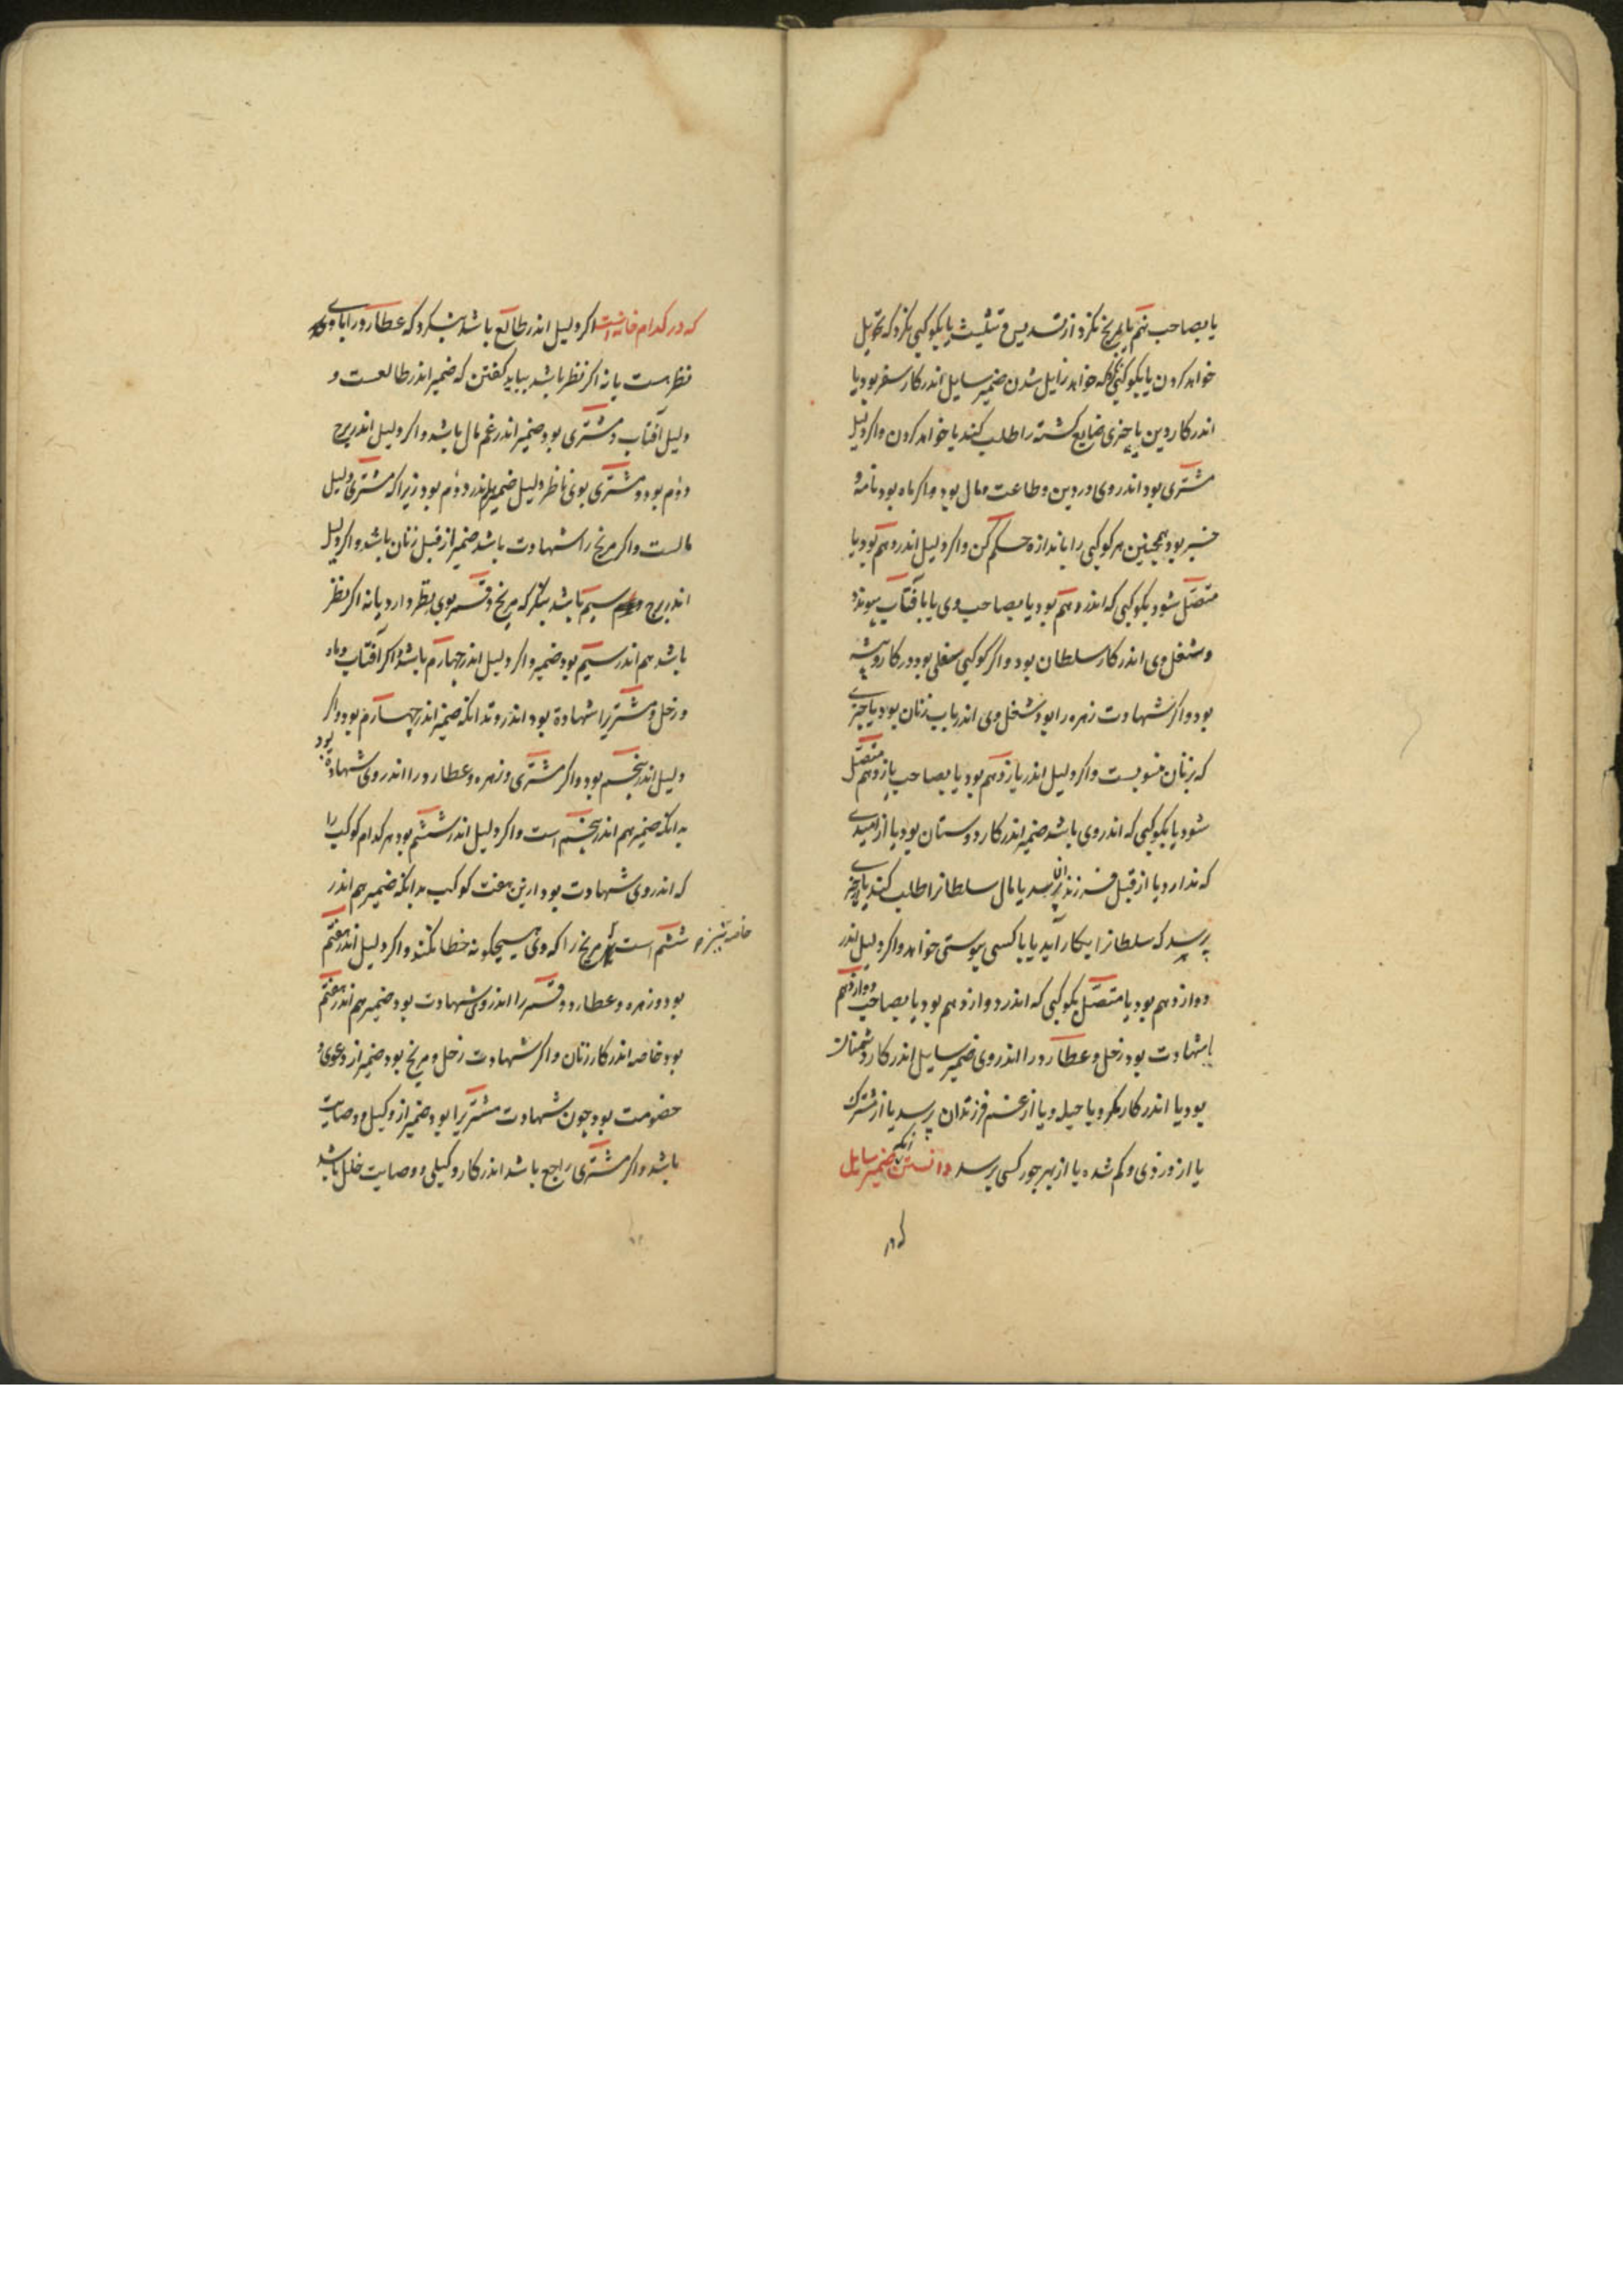 یا بصاحب نهم یا بمریخ نکرد از تسدیس و تثلیث یا بکوکبی نکرد که تحویل
خواهد کردن یا بکوکبی که خواهد زایل شدن ضمیر سایل اندر کار سفر بود یا
اندر کار دین یا چیزی ضایع کشته را طلب کند یا خواهد کردن واکر دلیل
مشتری بود اندر وی و دین و طاعت و مال بود و اکر ماه بود نامه و
خبر بود همچنین هر کوکبی را باندازه حکم کن واکر دلیل اندر دهم بود یا
متصل شود بکوکبی که اندر دهم بود یا بصاحب وی یا بافتاب پیوندد
و شغل وی اندر کار سلطان بود واکر کوکبی سفلی بود در کار و پیشه
بود واکر شهادت زهره را بود شغل وی اندر باب زنان بود یا چیزی
که بزنان منسوبست واکر دلیل اندر یازدهم بود یا بصاحب یازدهم متصل
شود یا بکوکبی که اندر وی باشد ضمیر اندر کار دوستان بود یا از امیدی
که ندارد یا از قبل فرزندان پرسد یا مال سلطانرا طلب کند یا چیزی
پرسد که سلطانرا بکار آید یا با کسی پیوستی خواهد واکر دلیل اندر
دوازدهم بود یا متصل بکوکبی که اندر دوازدهم بود یا بصاحب دوازدهم
یا شهادت بود زحل و عطارد را اندر وی ضمیر سایل اندر کار دشمنان
بود یا اندر کار مکر و یا حیله و یا از غم فرزندان پرسد یا از مشترک
یا از دزدی و کم شده یا از بهر جور کسی پرسد دانستن آنکه ضمیر سایل
که در
که در کدام خانه است اکر دلیل اندر طالع باشد بنکرد که عطارد را با وی
نظر هست یا نه اکر نظر باشد بباید کفتن که ضمیر اندر طالعست و
دلیل آفتاب و مشتری بود ضمیر اندر غم مال باشد واکر دلیل اندر برج
دوم بود و مشتری بوی ناظر دلیل ضمیر اندر دوم بود زیرا که مشتری دلیل
مالست واکر مریخ را شهادت باشد ضمیر از قبل زنان باشد واکر دلیل
اندر برج سیم باشد بنکر که مریخ و قمر بوی نظر دارد یا نه اکر نظر
باشد هم اندر سیم بود ضمیر واکر دلیل اندر چهارم باشد و اکر آفتاب و ماه
و زحل و مشتریرا شهادة بود اندر وتد آنکه ضمیر اندر چهارم بود واکر
دلیل اندر پنجم بود واکر مشتری و زهره و عطارد را اندر وی شهادة بود
بدانکه ضمیر هم اندر پنجم است واکر دلیل اندر ششم بود هر کدام کوکب را
که اندر وی شهادت بود ازین هفت کوکب بدانکه ضمیر هم اندر
ششم است مریخ را که وی هیچکونه خطا نکند واکر دلیل اندر هفتم
بود و زهره و عطارد و قمر را اندر وی شهادت بود ضمیر هم اندر هفتم
بود خاصه اندر کار زنان واکر شهادت زحل و مریخ بود ضمیر از دعوی و
خصومت بود چون شهادت مشتریرا بود ضمیر از وکیل و وصایت
باشد واکر مشتری راجع باشد اندر کار وکیلی و وصایت خلل باشد